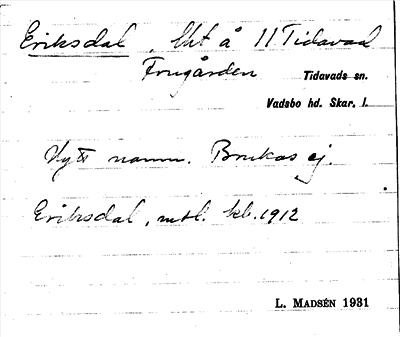 Eriksdal, lht å 11 Tidavad
Frugården Tidavads sn.
Vadsbo hd. Skar. l.
Nytt namn. Brukas ej.
Eriksdal, mtl. kb. 1912
L. MADSÉN 1931